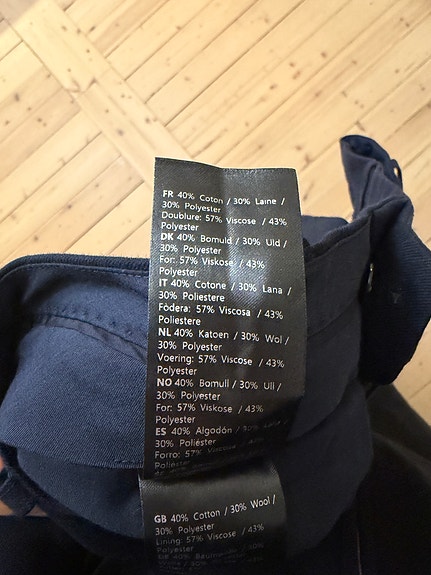 FR 40% Coton / 30% Laine /
30% Polyester
Doublure: 57% Viscose / 43%
Polyester
DK 40% Bomuld / 30% Uld /
30% Polyester
For: 57% Viskose / 43%
Polyester
IT 40% Cotone / 30% Lana /
30% Poliestere
Fòdera: 57% Viscosa / 43%
Poliestere
NL 40% Katoen / 30% Wol /
30% Polyester
Voering: 57% Viscose / 43%
Polyester
NO 40% Bomull / 30% Ull /
30% Polyester
For: 57% Viskose / 43%
Polyester
ES 40% Algodón / 30%
30% Poliéster
Forro: 57% Viscosa / 43%
Poliéster
GB 40% Cotton / 30% Wool /
30% Polyester
Lining: 57% Viscose / 43%
Polyester
40% Baumwolle / 30%